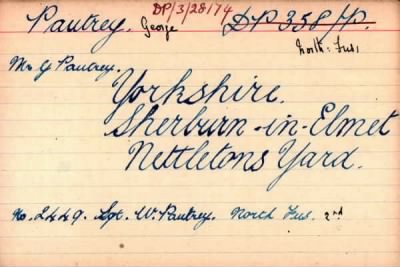 Pautrey. George DP/3/28174 DP 358/P.
North: Fus,
Mr. G Pautrey.
Yorkshire.
Sherburn-in-Elmet
Nettletons Yard.
No. 2449. Sgt. W. Pautrey. North Fus. 2nd